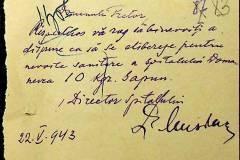 87 83
Domnule Pretor
Respectuos vă rog să binevoiți a
dispune ca să se elibereze pentru
nevoile sanitare a spitalului Doma
nevca 10 Kgr. Sapun.
Director Spitalului
22.V.943